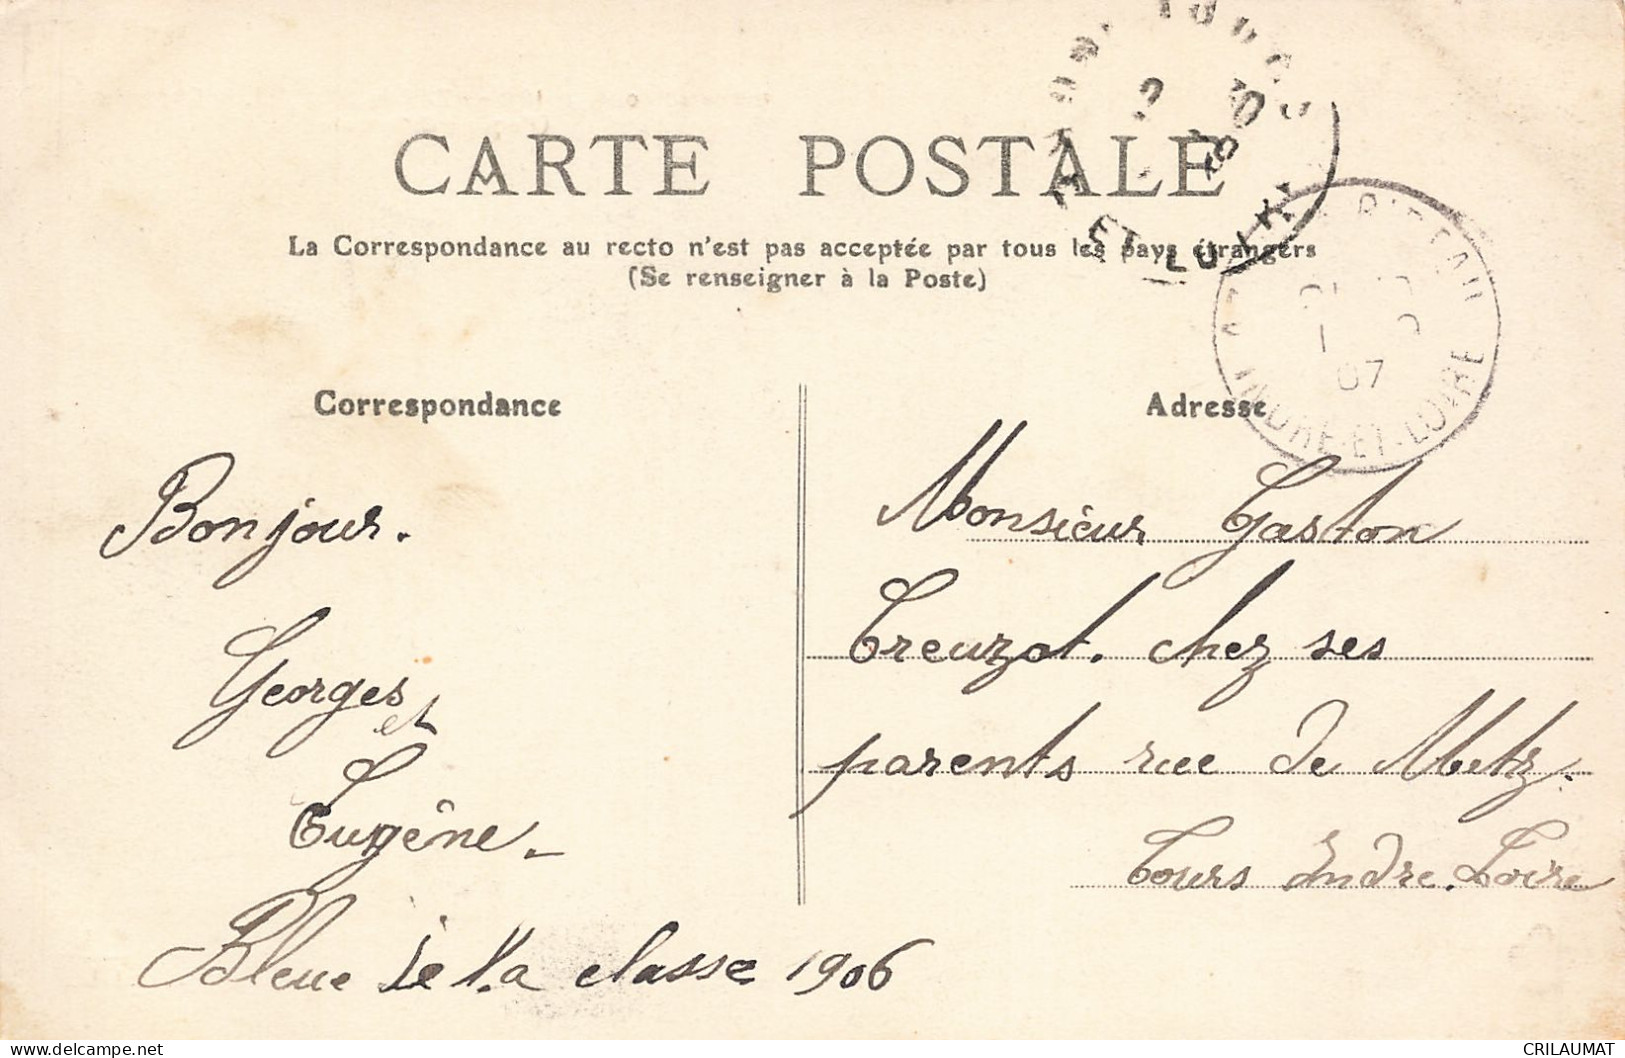 CARTE POSTALE
La Correspondance au recto n'est pas acceptée par tous les pays étrangers
(Se renseigner à la Poste)
ET LO
RIDEAU
07
INDRE-ET-LOIRE
Correspondance
Adresse
Bonjour.
Georges
et
Eugène
Bleue de la classe 1906
Monsieur Gaston
Creuzot. chez ses
parents rue de Metz.
Tours Indre. Loire
CRILAUMAT